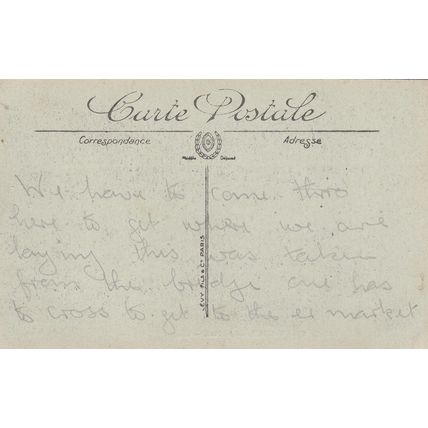 Carte Postale
Correspondance Adresse
Modèle Déposé
LEVY FILS & Cie PARIS
We have to come thro
here to get where we are
laying this was taken
from the bridge one has
to cross to get to the market